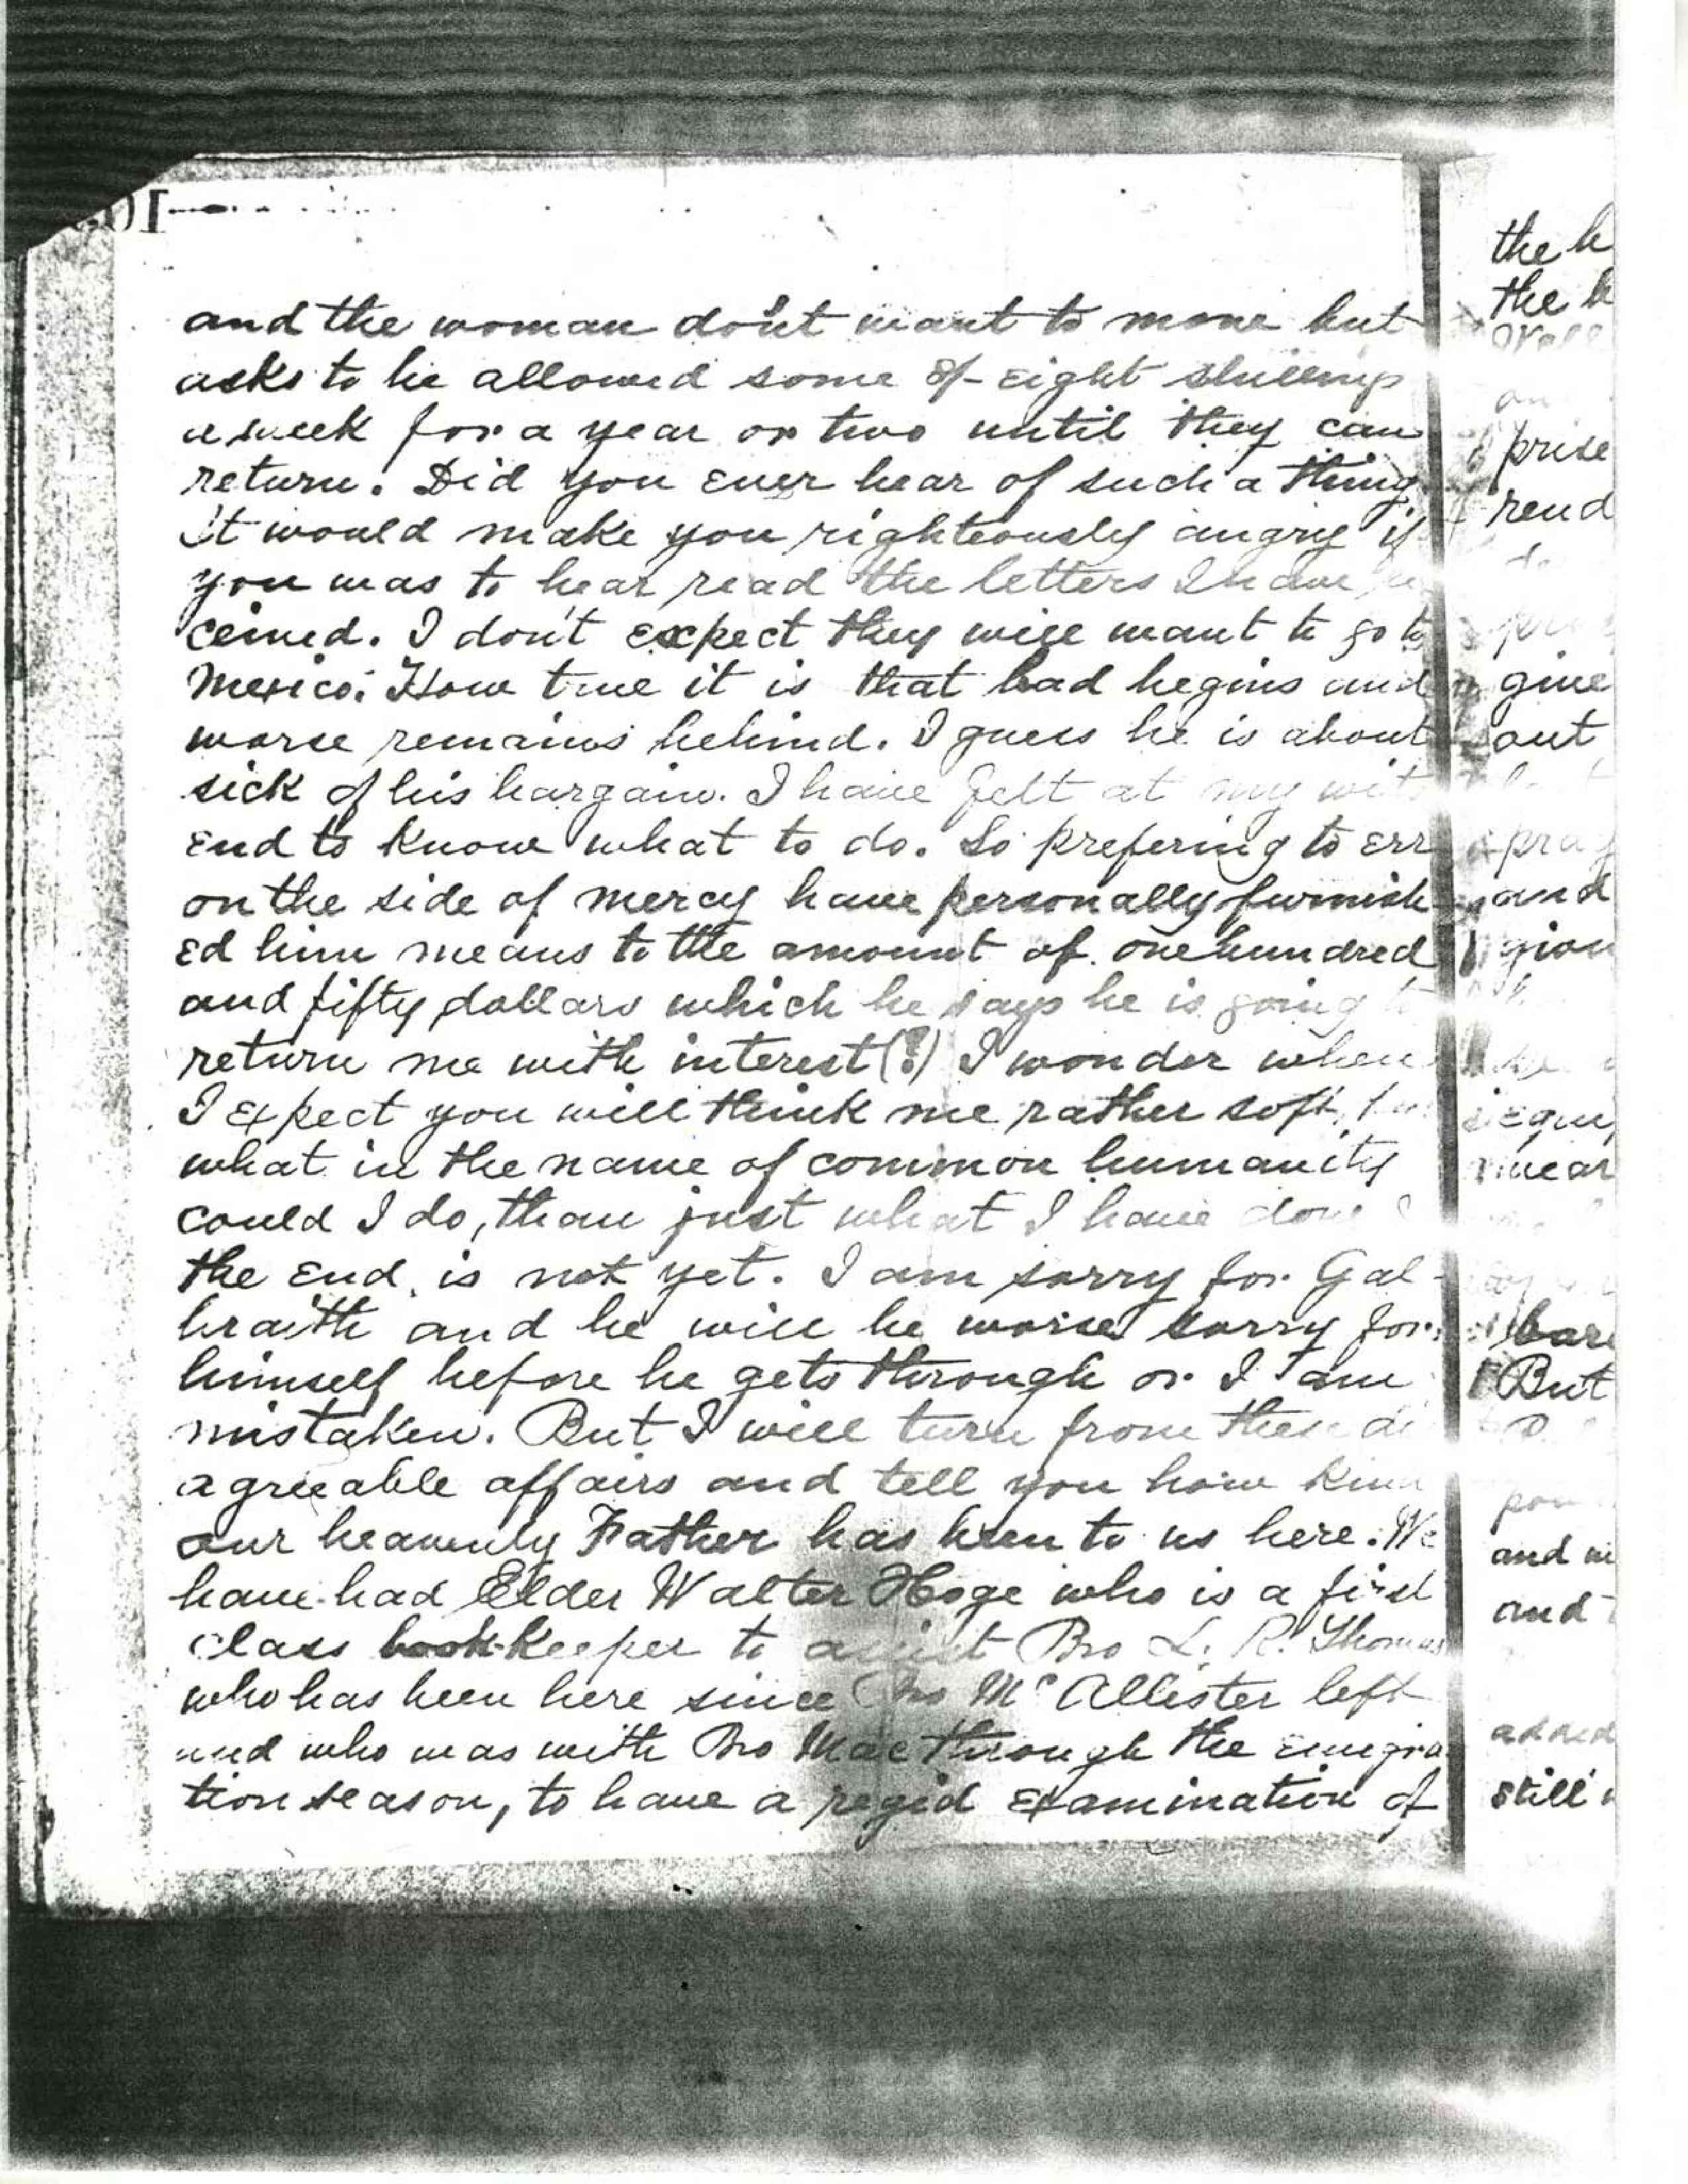 and the woman don't want to move but
asks to be allowed some 8/- eight shillings
a week for a year or two until they can
return. Did you ever hear of such a thing
It would make you righteously angry if
you was to hear read the letters I have re
ceived. I don't expect they will want to go to
Mexico. How true it is that bad begins and
worse remains behind. I guess he is about
sick of his bargain. I have felt at my wits
end to know what to do. So prefering to err
on the side of mercy have personally furnish
ed him means to the amount of one hundred
and fifty dollars which he says he is going to
return me with interest (?) I wonder when
I expect you will think me rather soft, but
what in the name of common humanity
could I do, than just what I have done
the end is not yet. I am sorry for Gal-
braith and he will be worse sorry for
himself before he gets through or I am
mistaken. But I will turn from these di
agreeable affairs and tell you how kind
our heavenly Father has been to us here. We
have had Elder Walter Hoge who is a first
class book-keeper to assist Bro L. R. Thomas
who has been here since Bro McAllister left
and who was with Bro Mac through the emigra
tion season, to have a regid examination of
the h
the b
prise
rend
give
out
pray
and
gion
near
bare
But
and
and
added
still